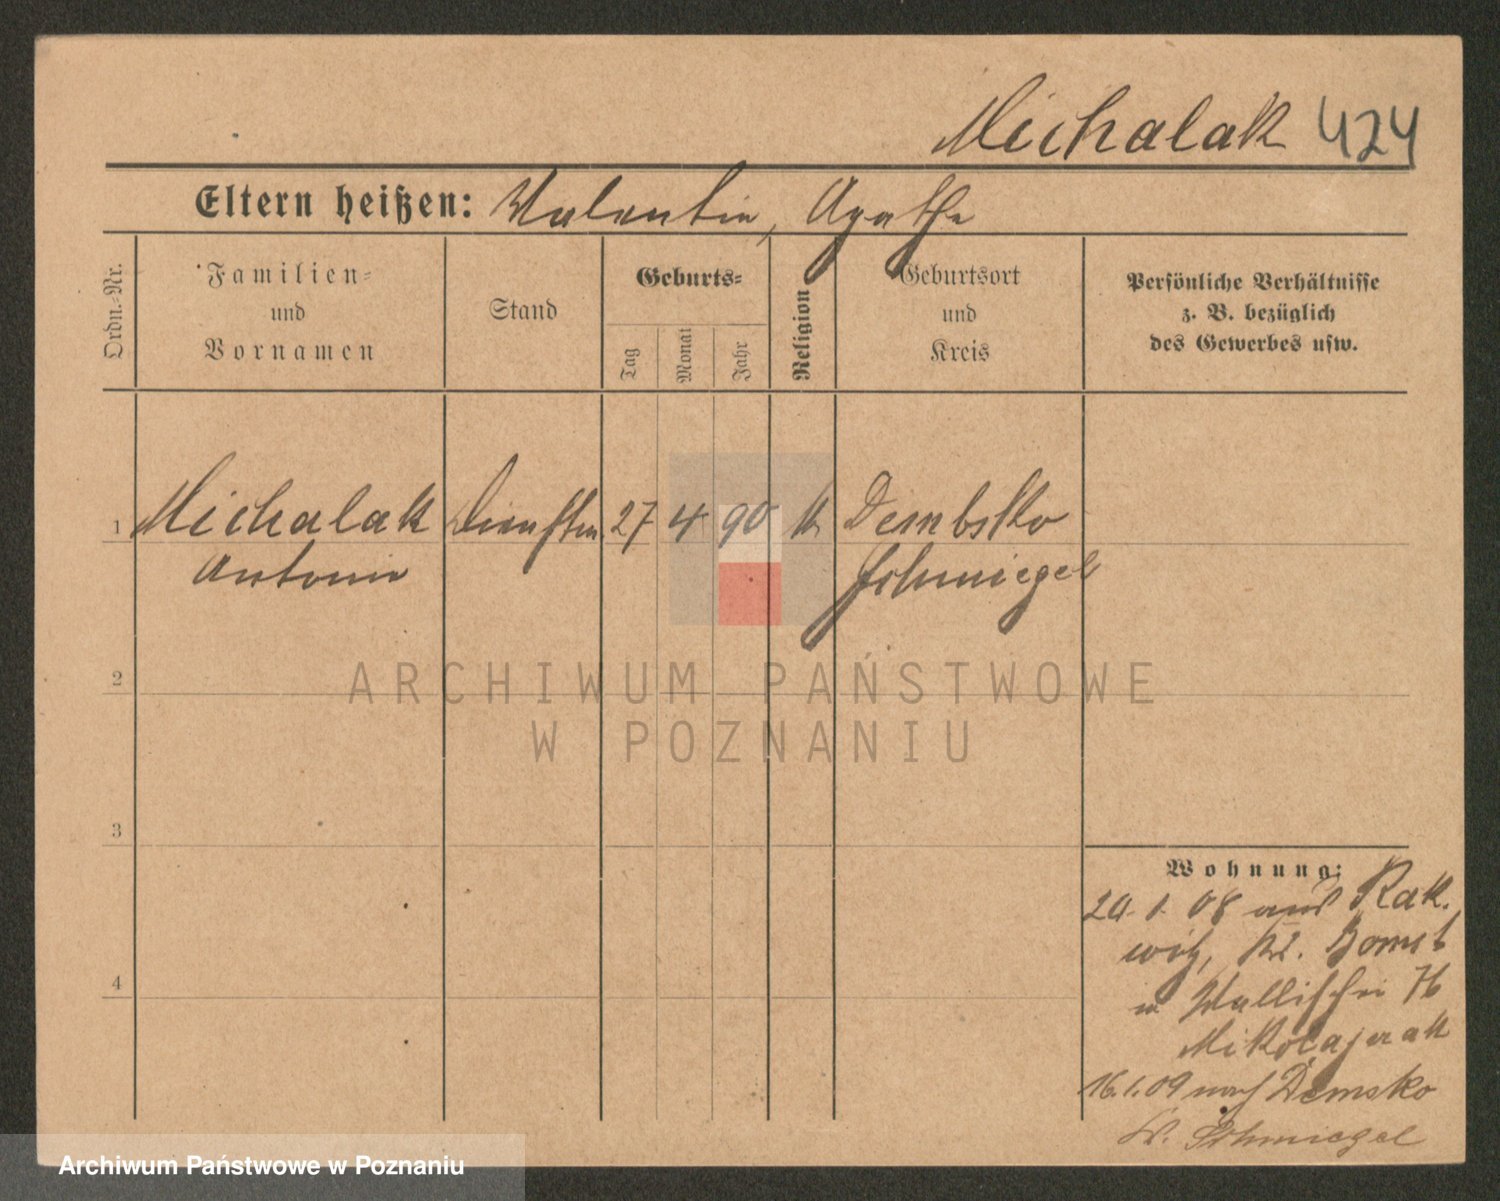 Michalak 424
Eltern heißen: Valentin, Agathe
Ordn.-Nr.
Familien=
und
Vornamen
Stand
Geburts=
Tag
Monat
Jahr
Religion
Geburtsort
und
Kreis
Persönliche Verhältnisse
z. B. bezüglich
des Gewerbes usw.
1 Michalak 27 4 90 k Dembsko
Antonie Schmiegel
2
3
4
Wohnung:
1. 08 aus Rak.
witz, Kr. Bomst
Wallischei 76
16.1.09 nach Demsko
Kr. Schmiegel
ARCHIWUM PAŃSTWOWE
W POZNANIU
Archiwum Państwowe w Poznaniu